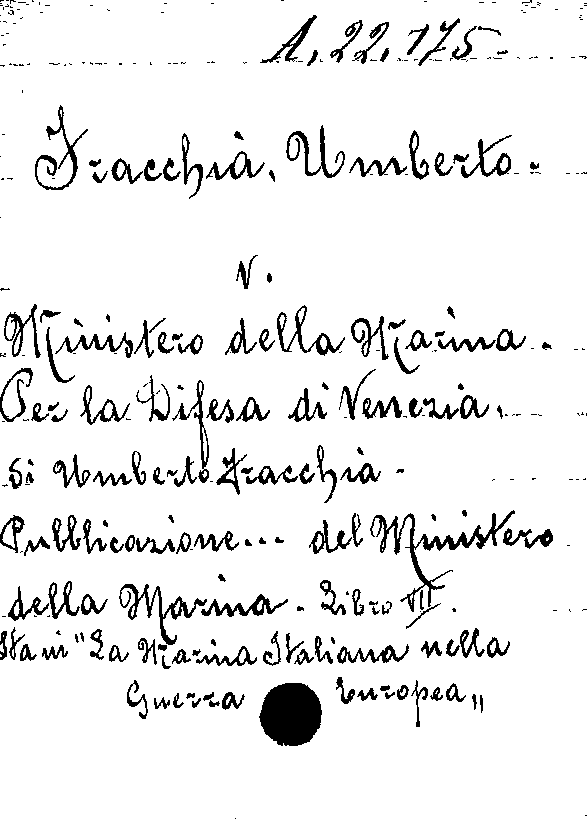 A. 22. 175.
Fracchia, Umberto.
v.
Ministero della Marina.
Per la Difesa di Venezia.
Di Umberto Fracchia.
Pubblicazione... del Ministero
della Marina. Libro VII.
Sta in "La Marina Italiana nella
Guerra Europea„